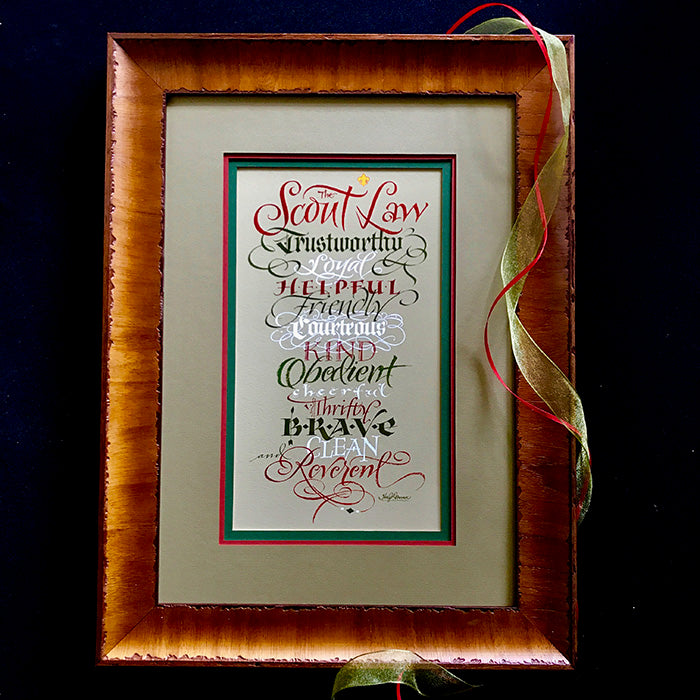 The
Scout Law
Trustworthy
Loyal
HELPFUL
Friendly
Courteous
KIND
Obedient
cheerful
Thrifty
B·R·A·V·E
CLEAN
and Reverent